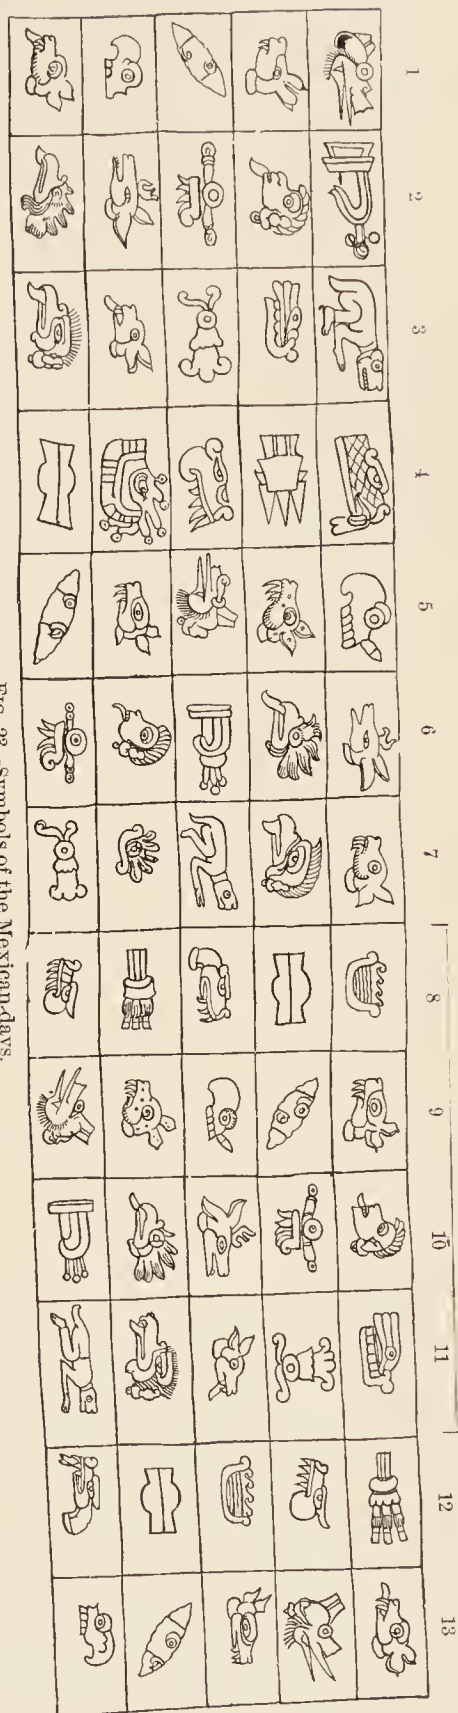 1
2
3
4
5
6
7
8
9
10
11
12
13
FIG. 23.—Symbols of the Mexican days.